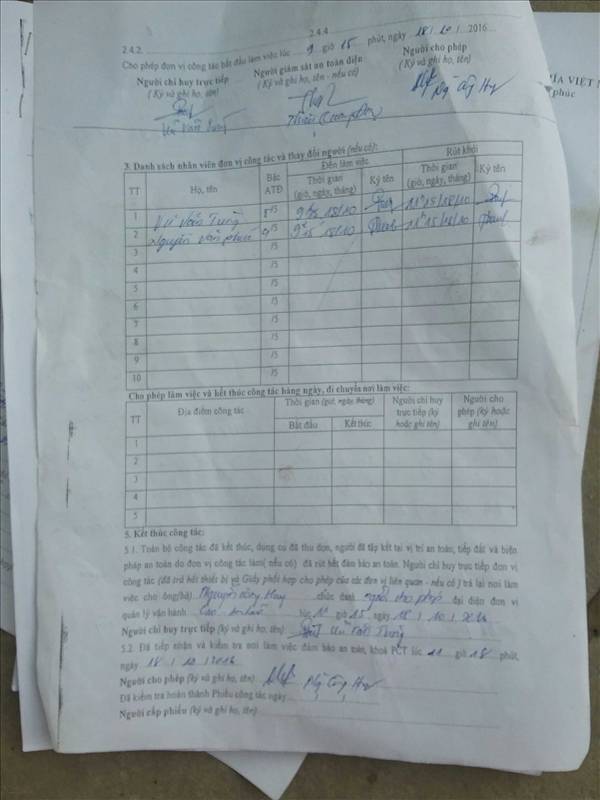 2.4.4.
2.4.2.
Cho phép đơn vị công tác bắt đầu làm việc lúc 9 giờ 15 phút, ngày 18 / 10 / 2016
Người chỉ huy trực tiếp Người giám sát an toàn điện Người cho phép
(Ký và ghi họ, tên) (Ký và ghi họ, tên - nếu có) (Ký và ghi họ, tên)
ÍA VIỆT N
phúc
3. Danh sách nhân viên đơn vị công tác và thay đổi người (nếu có):
TT Họ, tên Bậc ATĐ Đến làm việc Rút khỏi
Thời gian (giờ, ngày, tháng) Ký tên Thời gian (giờ, ngày, tháng) Ký tên
1 Vũ Văn Tưởng /5 18/10 11h15/18/10
2 Nguyễn Văn /5 18/10 11h15/18/10
3 /5
4 /5
5 /5
6 /5
7 /5
8 /5
9 /5
10 /5
Cho phép làm việc và kết thúc công tác hàng ngày, di chuyển nơi làm việc:
TT Địa điểm công tác Thời gian (giờ, ngày, tháng) Người chỉ huy trực tiếp (ký hoặc ghi tên) Người cho phép (ký hoặc ghi tên)
Bắt đầu Kết thúc
1
2
3
4
5
5. Kết thúc công tác:
5.1. Toàn bộ công tác đã kết thúc, dụng cụ đã thu dọn, người đã tập kết tại vị trí an toàn, tiếp đất và biện
pháp an toàn do đơn vị công tác làm( nếu có) đã rút hết đảm bảo an toàn. Người chỉ huy trực tiếp đơn vị
công tác (đã trả hết thiết bị và Giấy phối hợp cho phép của các đơn vị liên quan - nếu có ) trả lại nơi làm
việc cho ông(bà) Nguyễn Công Huy chức danh người cho phép đại diện đơn vị
quản lý vận hành lúc 11 giờ 15 ngày 18 / 10 / 2016
Người chỉ huy trực tiếp (ký và ghi họ, tên) Vũ Văn Tưởng
5.2. Đã tiếp nhận và kiểm tra nơi làm việc đảm bảo an toàn, khoá PCT lúc 11 giờ 18 phút,
ngày 18 / 10 / 2016
Người cho phép (ký và ghi họ, tên) Ng Công Huy
Đã kiểm tra hoàn thành Phiếu công tác ngày
Người cấp phiếu (ký và ghi họ, tên)